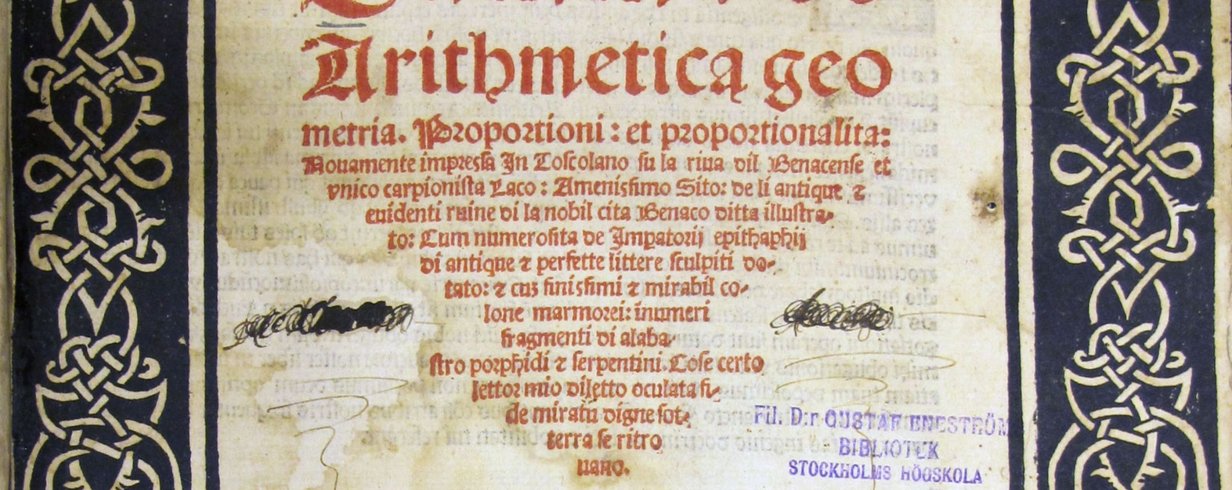 Arithmetica geo
metria. Proportioni: et proportionalita:
Nouamente impressa In Toscolano su la riua dil Benacense et
vnico carpionista Laco: Amenissimo Sito: de li antique &
euidenti ruine di la nobil cita Benaco ditta illustra-
to: Cum numerosita de Impatorij epithaphij
di antique & perfette littere sculpiti do-
tato: & cus finissimi & mirabil co-
lone marmorei: inumeri
fragmenti di alaba-
stro porphidi & serpentini. Cose certo
lettor mio diletto oculata fi-
de miratu digne sot-
terra se ritro
uano.
Fil. D:r GUSTAF ENESTRÖM
BIBLIOTEK
STOCKHOLMS HÖGSKOLA